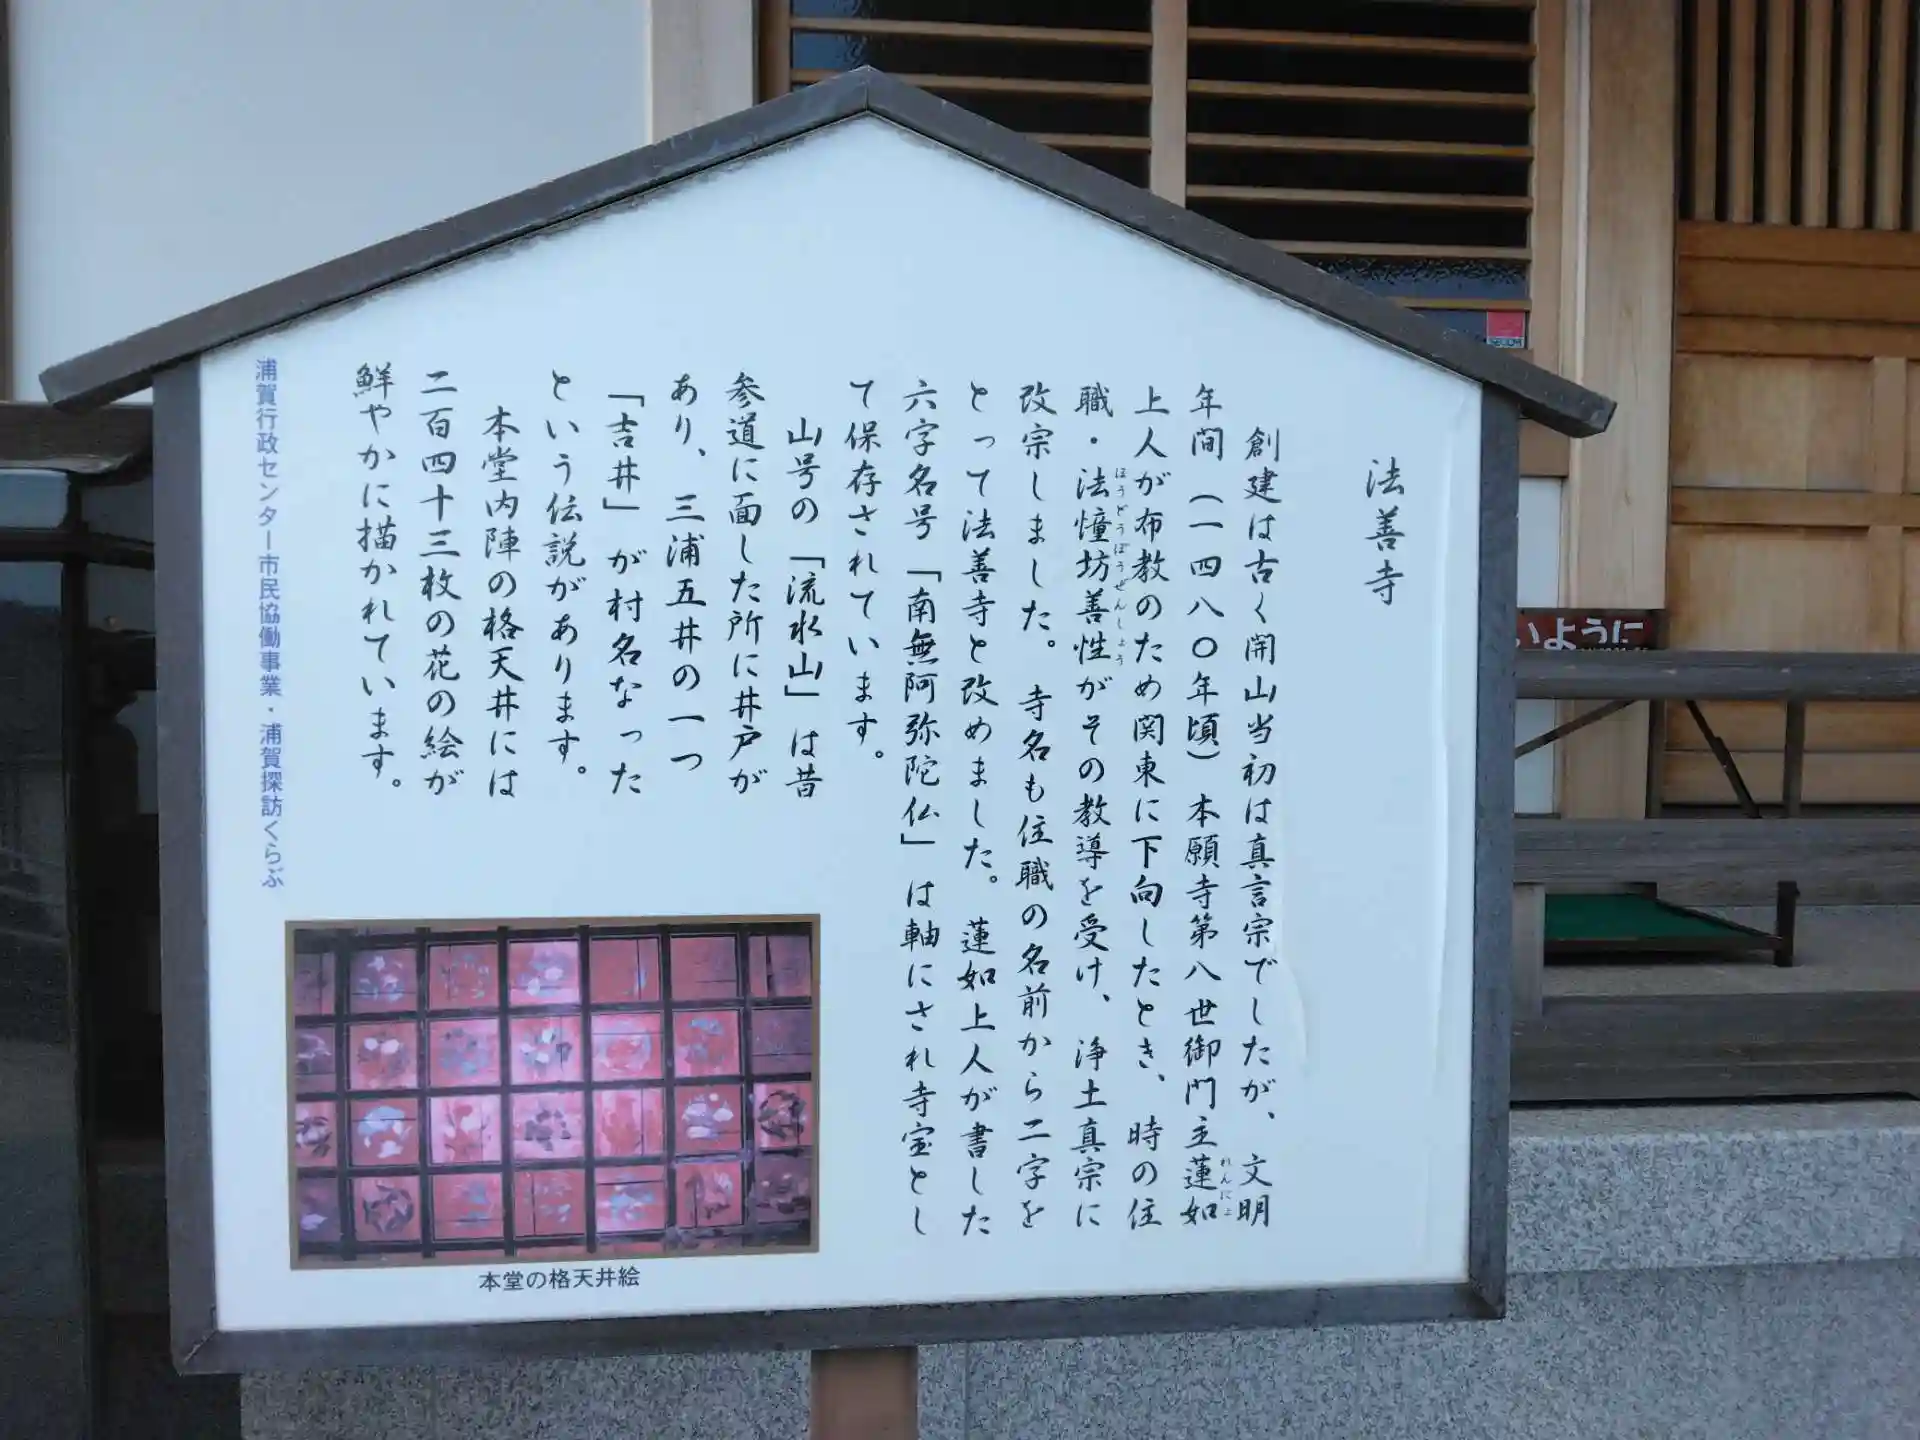 法善寺
創建は古く開山当初は真言宗でしたが、文明
年間（一四八〇年頃）本願寺第八世御門主蓮如
れんにょ
上人が布教のため関東に下向したとき、時の住
職・法憧坊善性がその教導を受け、浄土真宗に
ほうどうぼうぜんしょう
改宗しました。寺名も住職の名前から二字を
とって法善寺と改めました。蓮如上人が書した
六字名号「南無阿弥陀仏」は軸にされ寺宝とし
て保存されています。
山号の「流水山」は昔
参道に面した所に井戸が
あり、三浦五井の一つ
「吉井」が村名なった
という伝説があります。
本堂内陣の格天井には
二百四十三枚の花の絵が
鮮やかに描かれています。
浦賀行政センター市民協働事業・浦賀探訪くらぶ
本堂の格天井絵
いように
SECOM